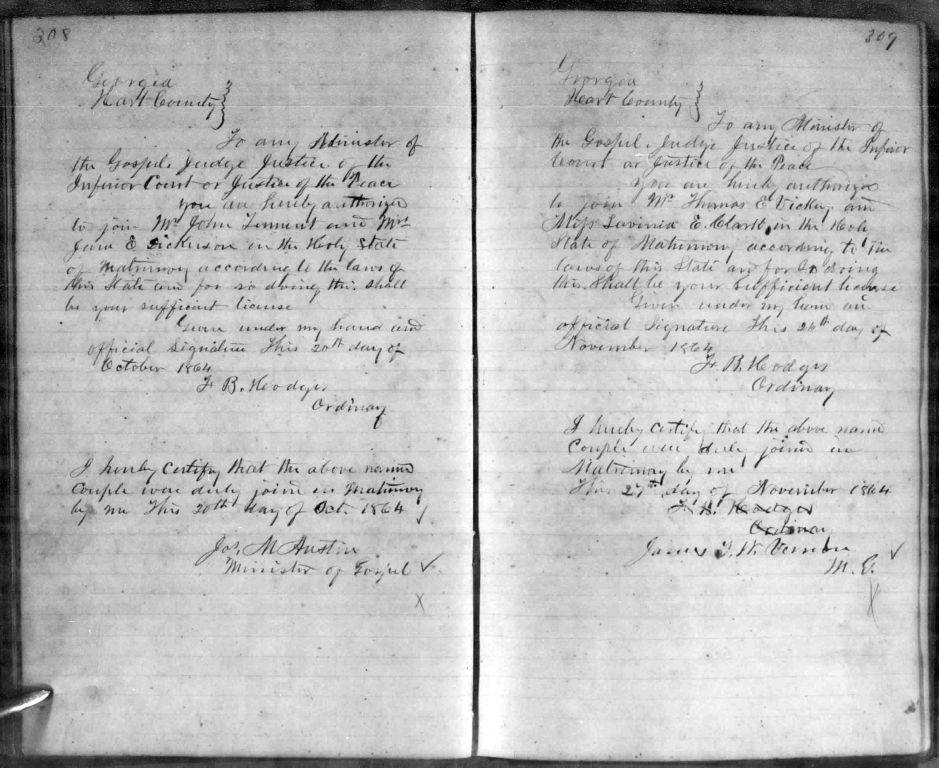 308
Georgia
Hart County
To any Minister of
the Gospel, Judge Justice of the
Inferior Court or Justice of the Peace
you are hereby authorized
to join Mr John and Mrs
Jane E Dickerson in the Holy State
of Matrimony according to the laws of
this State and for so doing this shall
be your sufficient license
Given under my hand and
official Signature This 20th day of
October 1864
F. B. Hodges
Ordinary
I hereby certify that the above named
couple were duly joined in Matrimony
by me This 20th day of Oct. 1864
Jas M Austin
Minister of Gospel
309
Georgia
Hart County
To any Minister of
the Gospel, Judge Justice of the Inferior
Court or Justice of the Peace
You are hereby authorized
to join Mr Thomas E Vickey and
Miss Lavinia E. Clark in the Holy
State of Matrimony according to the
laws of this State and for so doing
this shall be your sufficient license
Given under my hand and
official Signature This 26th day of
November 1864
F. B. Hodges
Ordinary
I hereby certify that the above named
Couple were duly joined in
Matrimony by me
This 27th day of November 1864
F. B. Hodges
Ordinary
James
M. G.